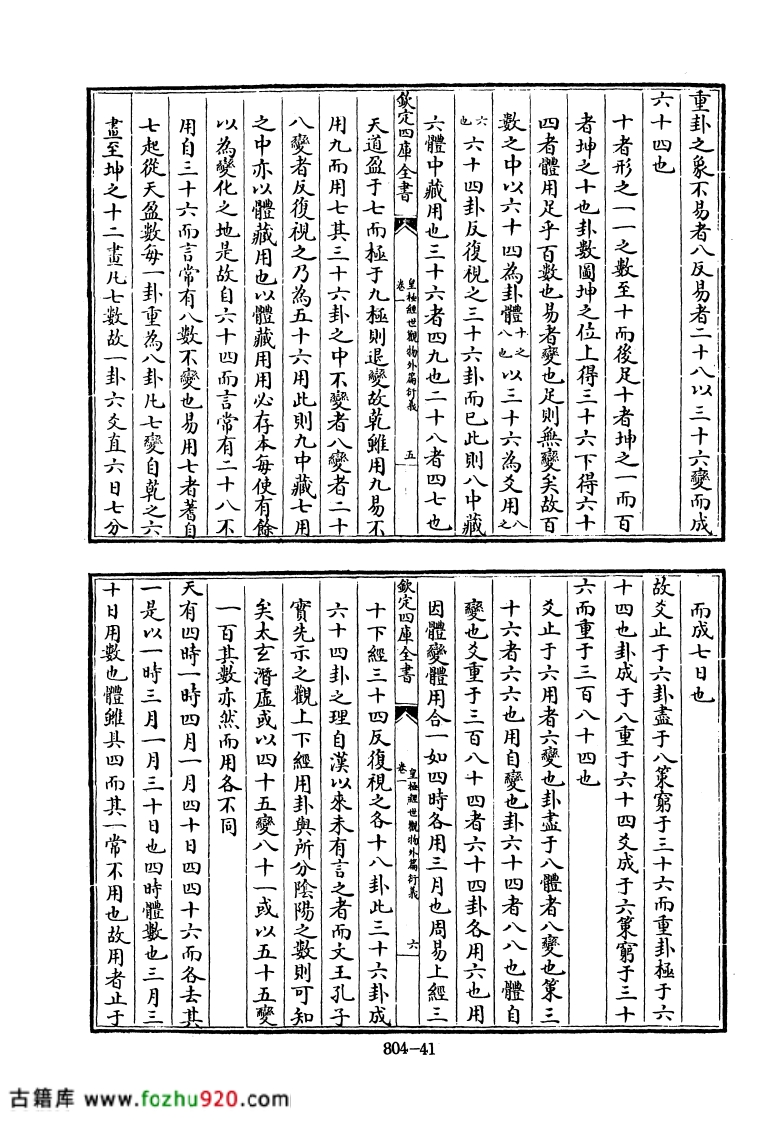 重卦之象不易者八反易者二十八以三十六變而成
六十四也
十者形之一一之數至十而後足十者坤之一而百
者坤之十也卦數圖坤之位上得三十六下得六十
四者體用足乎百數也易者變也足則無變矣故百
數之中以六十四為卦體八也十之以三十六為爻用八之
六也六十四卦反復視之三十六卦而已此則八中藏
六體中藏用也三十六者四九也二十八者四七也
欽定四庫全書
皇極經世觀物外篇衍義
卷一
五
天道盈于七而極于九極則退變故乾雖用九易不
用九而用七其三十六卦之中不變者八變者二十
八變者反復視之乃為五十六用此則九中藏七用
之中亦以體藏用也以體藏用用必存本每使有餘
以為變化之地是故自六十四而言常有二十八不
用自三十六而言常有八數不變也易用七者蓍自
七起從天盈數每一卦重為八卦凡七變自乾之六
畫至坤之十二畫凡七數故一卦六爻直六日七分
而成七日也
故爻止于六卦盡于八策窮于三十六而重卦極于六
十四也卦成于八重于六十四爻成于六策窮于三十
六而重于三百八十四也
爻止于六用者六變也卦盡于八體者八變也策三
十六者六六也用自變也卦六十四者八八也體自
變也爻重于三百八十四者六十四卦各用六也用
因體變體用合一如四時各用三月也周易上經三
欽定四庫全書
皇極經世觀物外篇衍義
卷一
六
十下經三十四反復視之各十八卦此三十六卦成
六十四卦之理自漢以來未有言之者而文王孔子
實先示之觀上下經用卦與所分陰陽之數則可知
矣太玄潛虛或以四十五變八十一或以五十五變
一百其數亦然而用各不同
天有四時一時四月一月四十日四四十六而各去其
一是以一時三月一月三十日也四時體數也三月三
十日用數也體雖具四而其一常不用也故用者止于
804-41
古籍库 www.fozhu920.com